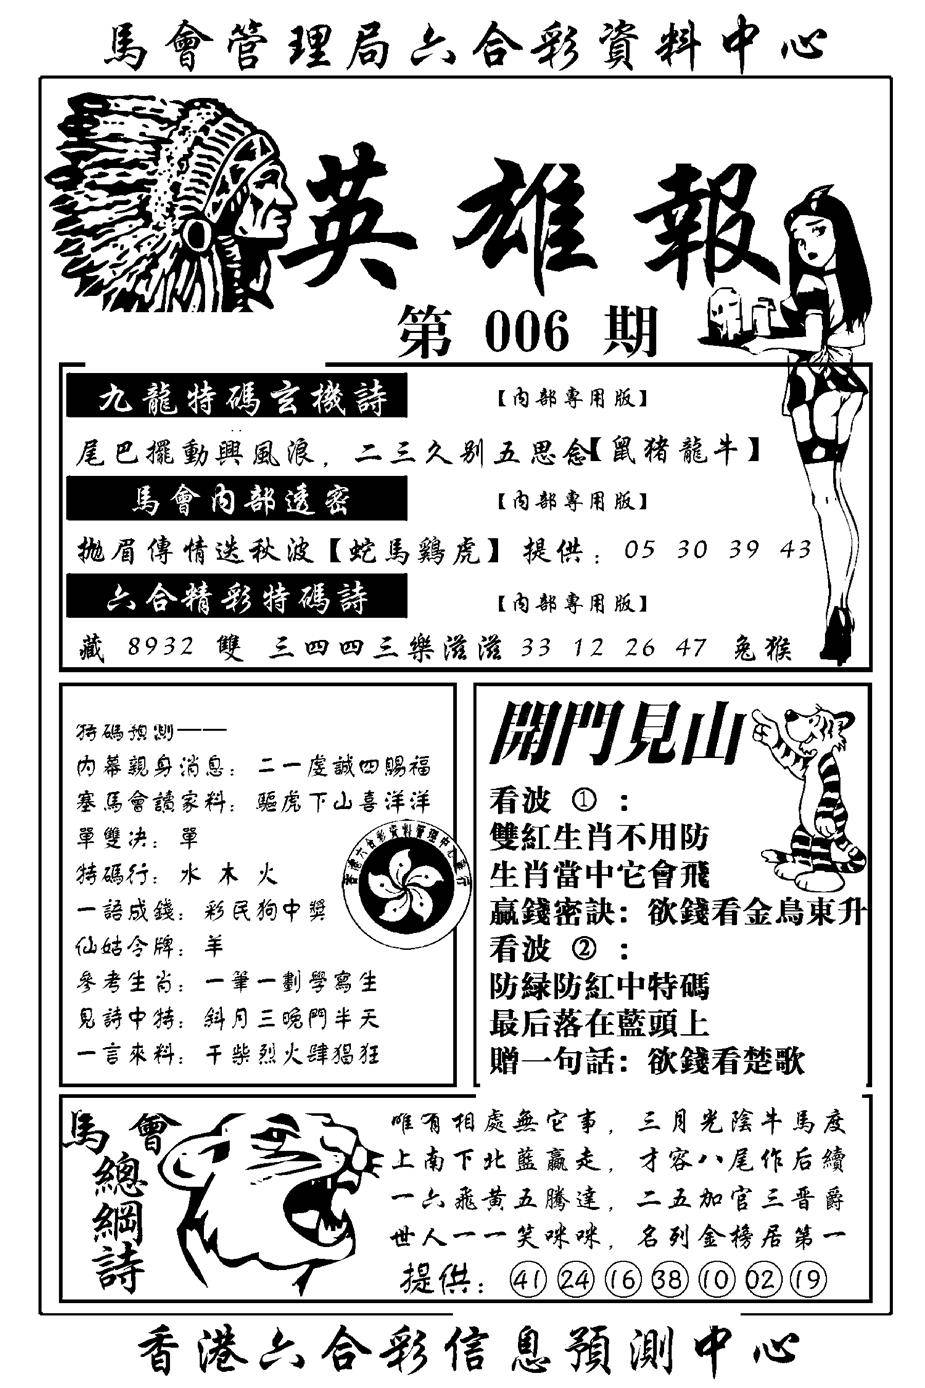 馬會管理局六合彩資料中心
英雄報
第 006 期
九龍特碼玄機詩 【內部專用版】
尾巴擺動興風浪, 二三久别五思念【鼠猪龍牛】
馬會內部透密 【內部專用版】
拋眉傳情送秋波【蛇馬鷄虎】 提供: 05 30 39 43
六合精彩特碼詩 【內部專用版】
藏 8932 雙 三四四三樂滋滋 33 12 26 47 兔猴
特碼預測——
內幕親身消息: 二一虔誠四賜福
塞馬會讀家料: 驅虎下山喜洋洋
單雙决: 單
特碼行: 水 木 火
一語成錢: 彩民狗中獎
仙姑令牌: 羊
參考生肖: 一筆一劃學寫生
見詩中特: 斜月三晚門半天
一言來料: 干柴烈火肆猖狂
開門見山
看波 ① :
雙紅生肖不用防
生肖當中它會飛
贏錢密訣: 欲錢看金烏東升
看波 ② :
防緑防紅中特碼
最后落在藍頭上
贈一句話: 欲錢看楚歌
馬會
總綱詩
唯有相處無它事, 三月光陰牛馬度
上南下北藍贏走, 才容八尾作后續
一六飛黄五騰達, 二五加官三晋爵
世人一一笑咪咪, 名列金榜居第一
提供: 41 24 16 38 10 02 19
香港六合彩信息預測中心